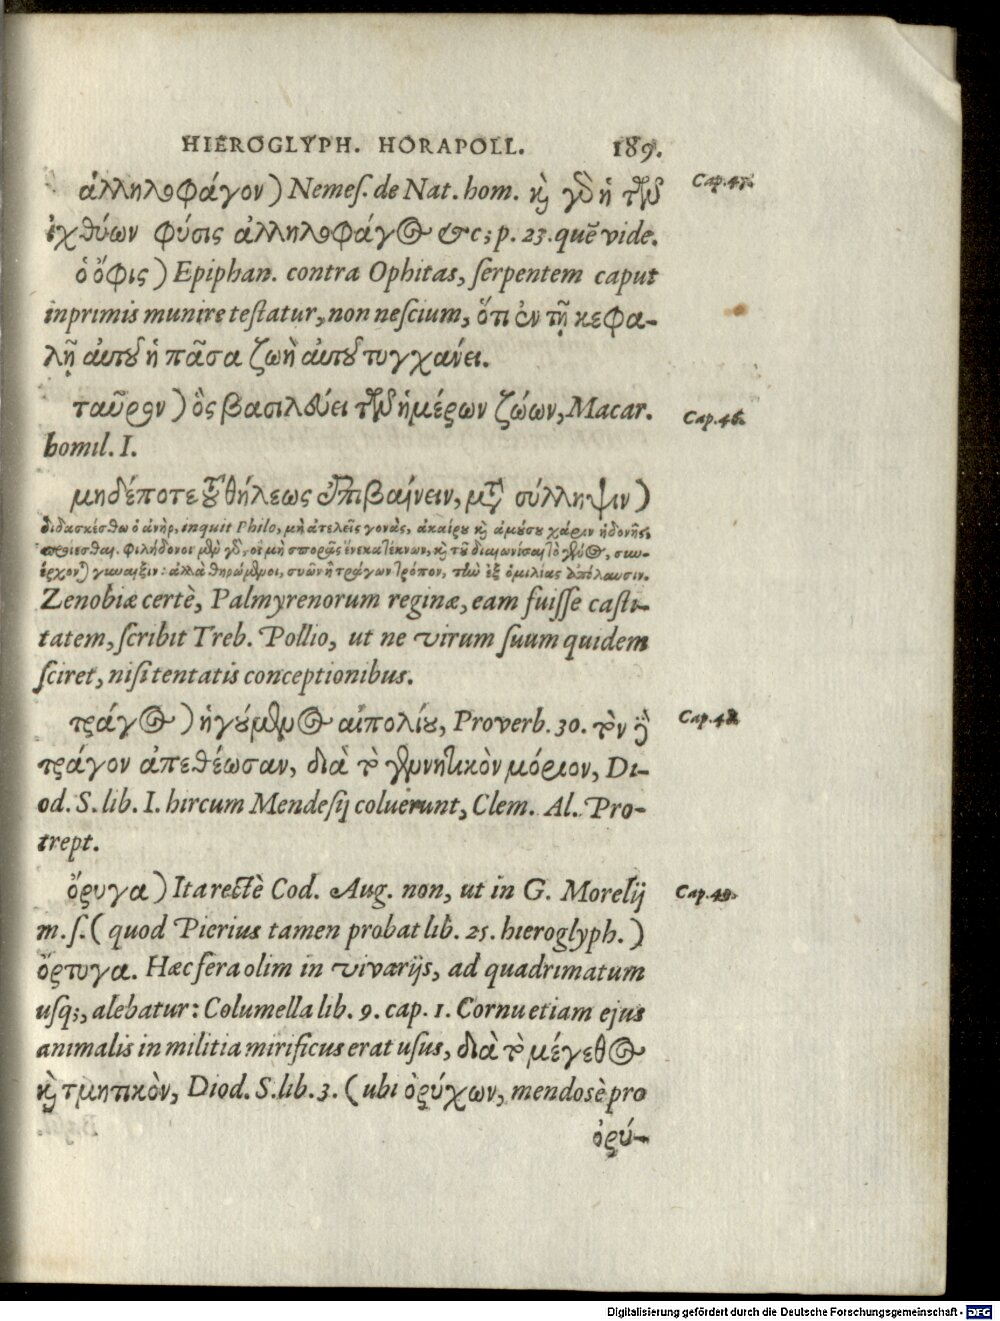 HIEROGLYPH. HORAPOLL. 189.
ἀλληλοφάγον) Nemeſ. de Nat. hom. καὶ γὰρ ἡ τῶν Cap.
ἰχθύων φύσις ἀλληλοφάγος &c; p. 23. quẽ vide.
ὁ ὄφις) Epiphan. contra Ophitas, ſerpentem caput
inprimis munire teſtatur, non neſcium, ὅτι ἐν τῇ κεφα-
λῇ αὐτοῦ ἡ πᾶσα ζωὴ αὐτοῦ τυγχάνει.
ταῦρον) ὃς βασιλεύει τῶν ἡμέρων ζώων, Macar. Cap. 46.
homil. I.
μηδέποτε τοῦ θήλεως ἐπιβαίνειν, μετὰ σύλληψιν)
διδασκέσθω ὁ ἀνὴρ, inquit Philo, μὴ ἀτελεῖς γονὰς, ἀκαίρου καὶ ἀμούσου χάριν ἡδονῆς,
προΐεσθαι. φιλήδονοι μὲν γὰρ, οἱ μὴ σπορᾶς ἕνεκα τέκνων, καὶ τοῦ διαιωνίσαι τὸ γένος, συν-
έρχονται γυναιξίν: ἀλλὰ θηρώμενοι, συῶν ἢ τράγων τρόπον, τὴν ἐξ ὁμιλίας ἀπόλαυσιν.
Zenobiæ certè, Palmyrenorum reginæ, eam fuiſſe caſti-
tatem, ſcribit Treb. Pollio, ut ne virum ſuum quidem
ſciret, niſi tentatis conceptionibus.
τράγος) ἡγούμενος αἰπολίου, Proverb. 30. τὸν δὲ Cap. 48.
τράγον ἀπεθέωσαν, διὰ τὸ γεννητικὸν μόριον, Di-
od. S. lib. I. hircum Mendeſij coluerunt, Clem. Al. Pro-
trept.
ὄρυγα) Ita rectè Cod. Aug. non, ut in G. Morelij Cap. 49.
m. ſ. (quod Pierius tamen probat lib. 25. hieroglyph.)
ὄρτυγα. Hæc fera olim in vivarijs, ad quadrimatum
uſq;, alebatur: Columella lib. 9. cap. 1. Cornu etiam ejus
animalis in militia mirificus erat uſus, διὰ τὸ μέγεθος
καὶ τμητικὸν, Diod. S. lib. 3. (ubi ὀρύχων, mendosè pro
ὀρύ-
Digitalisierung gefördert durch die Deutsche Forschungsgemeinschaft - DFG